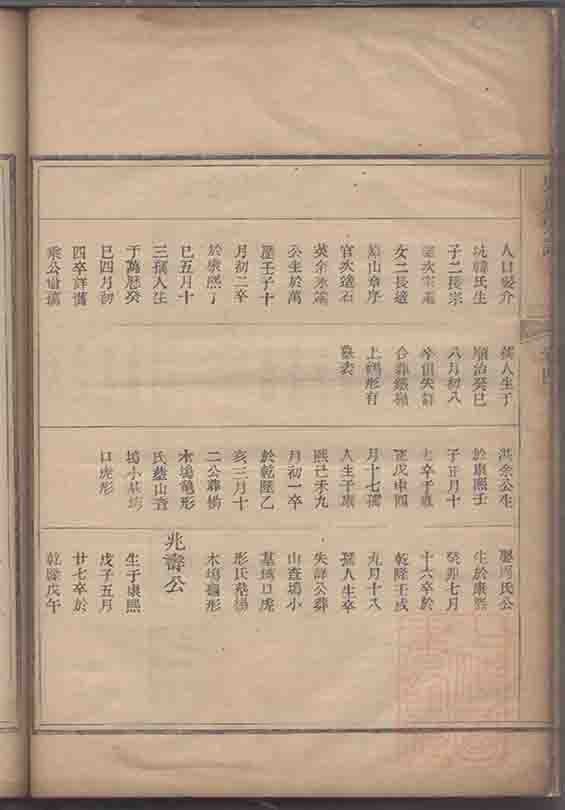 人口娶介
坑韓氏生
子二長宗
次宗
女二長適
山章序
官次適石
英余永
公生於萬
曆壬子十
月初二卒
於康熙丁
巳五月十
三孺人生
于萬曆癸
巳四月初
四卒詳舊
乘公
孺人生于
順治癸巳
八月初八
卒俱失詳
合葬
上形有
墓表
洪余公生
於康熙壬
子正月十
七卒于
戊申四
月十七孺
人生于康
熙己未九
月初一卒
於乾隆乙
亥三月十
二公葬楊
木塢龜形
氏葬山查
塢小墓塢
口虎形
娶周氏公
生於康熙
癸卯七月
十六卒於
乾隆壬戌
九月十八
孺人生卒
失詳公葬
山查塢小
墓塢口虎
形氏葬楊
木塢龜形
兆壽公
生于康熙
戊子五月
廿七卒於
乾隆戊午